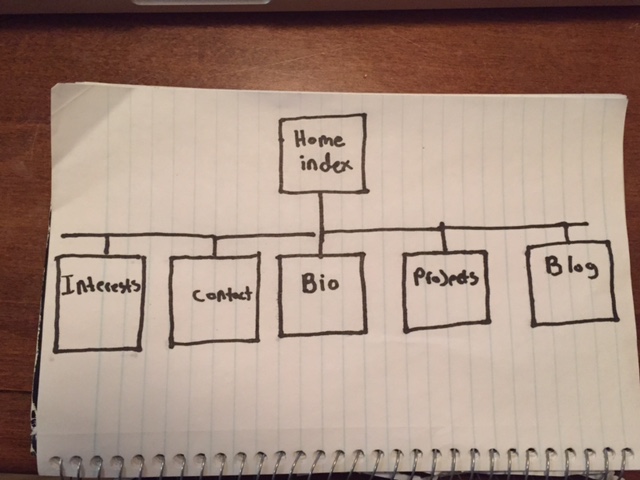 Home
index
Interests
Contact
Bio
Projects
Blog